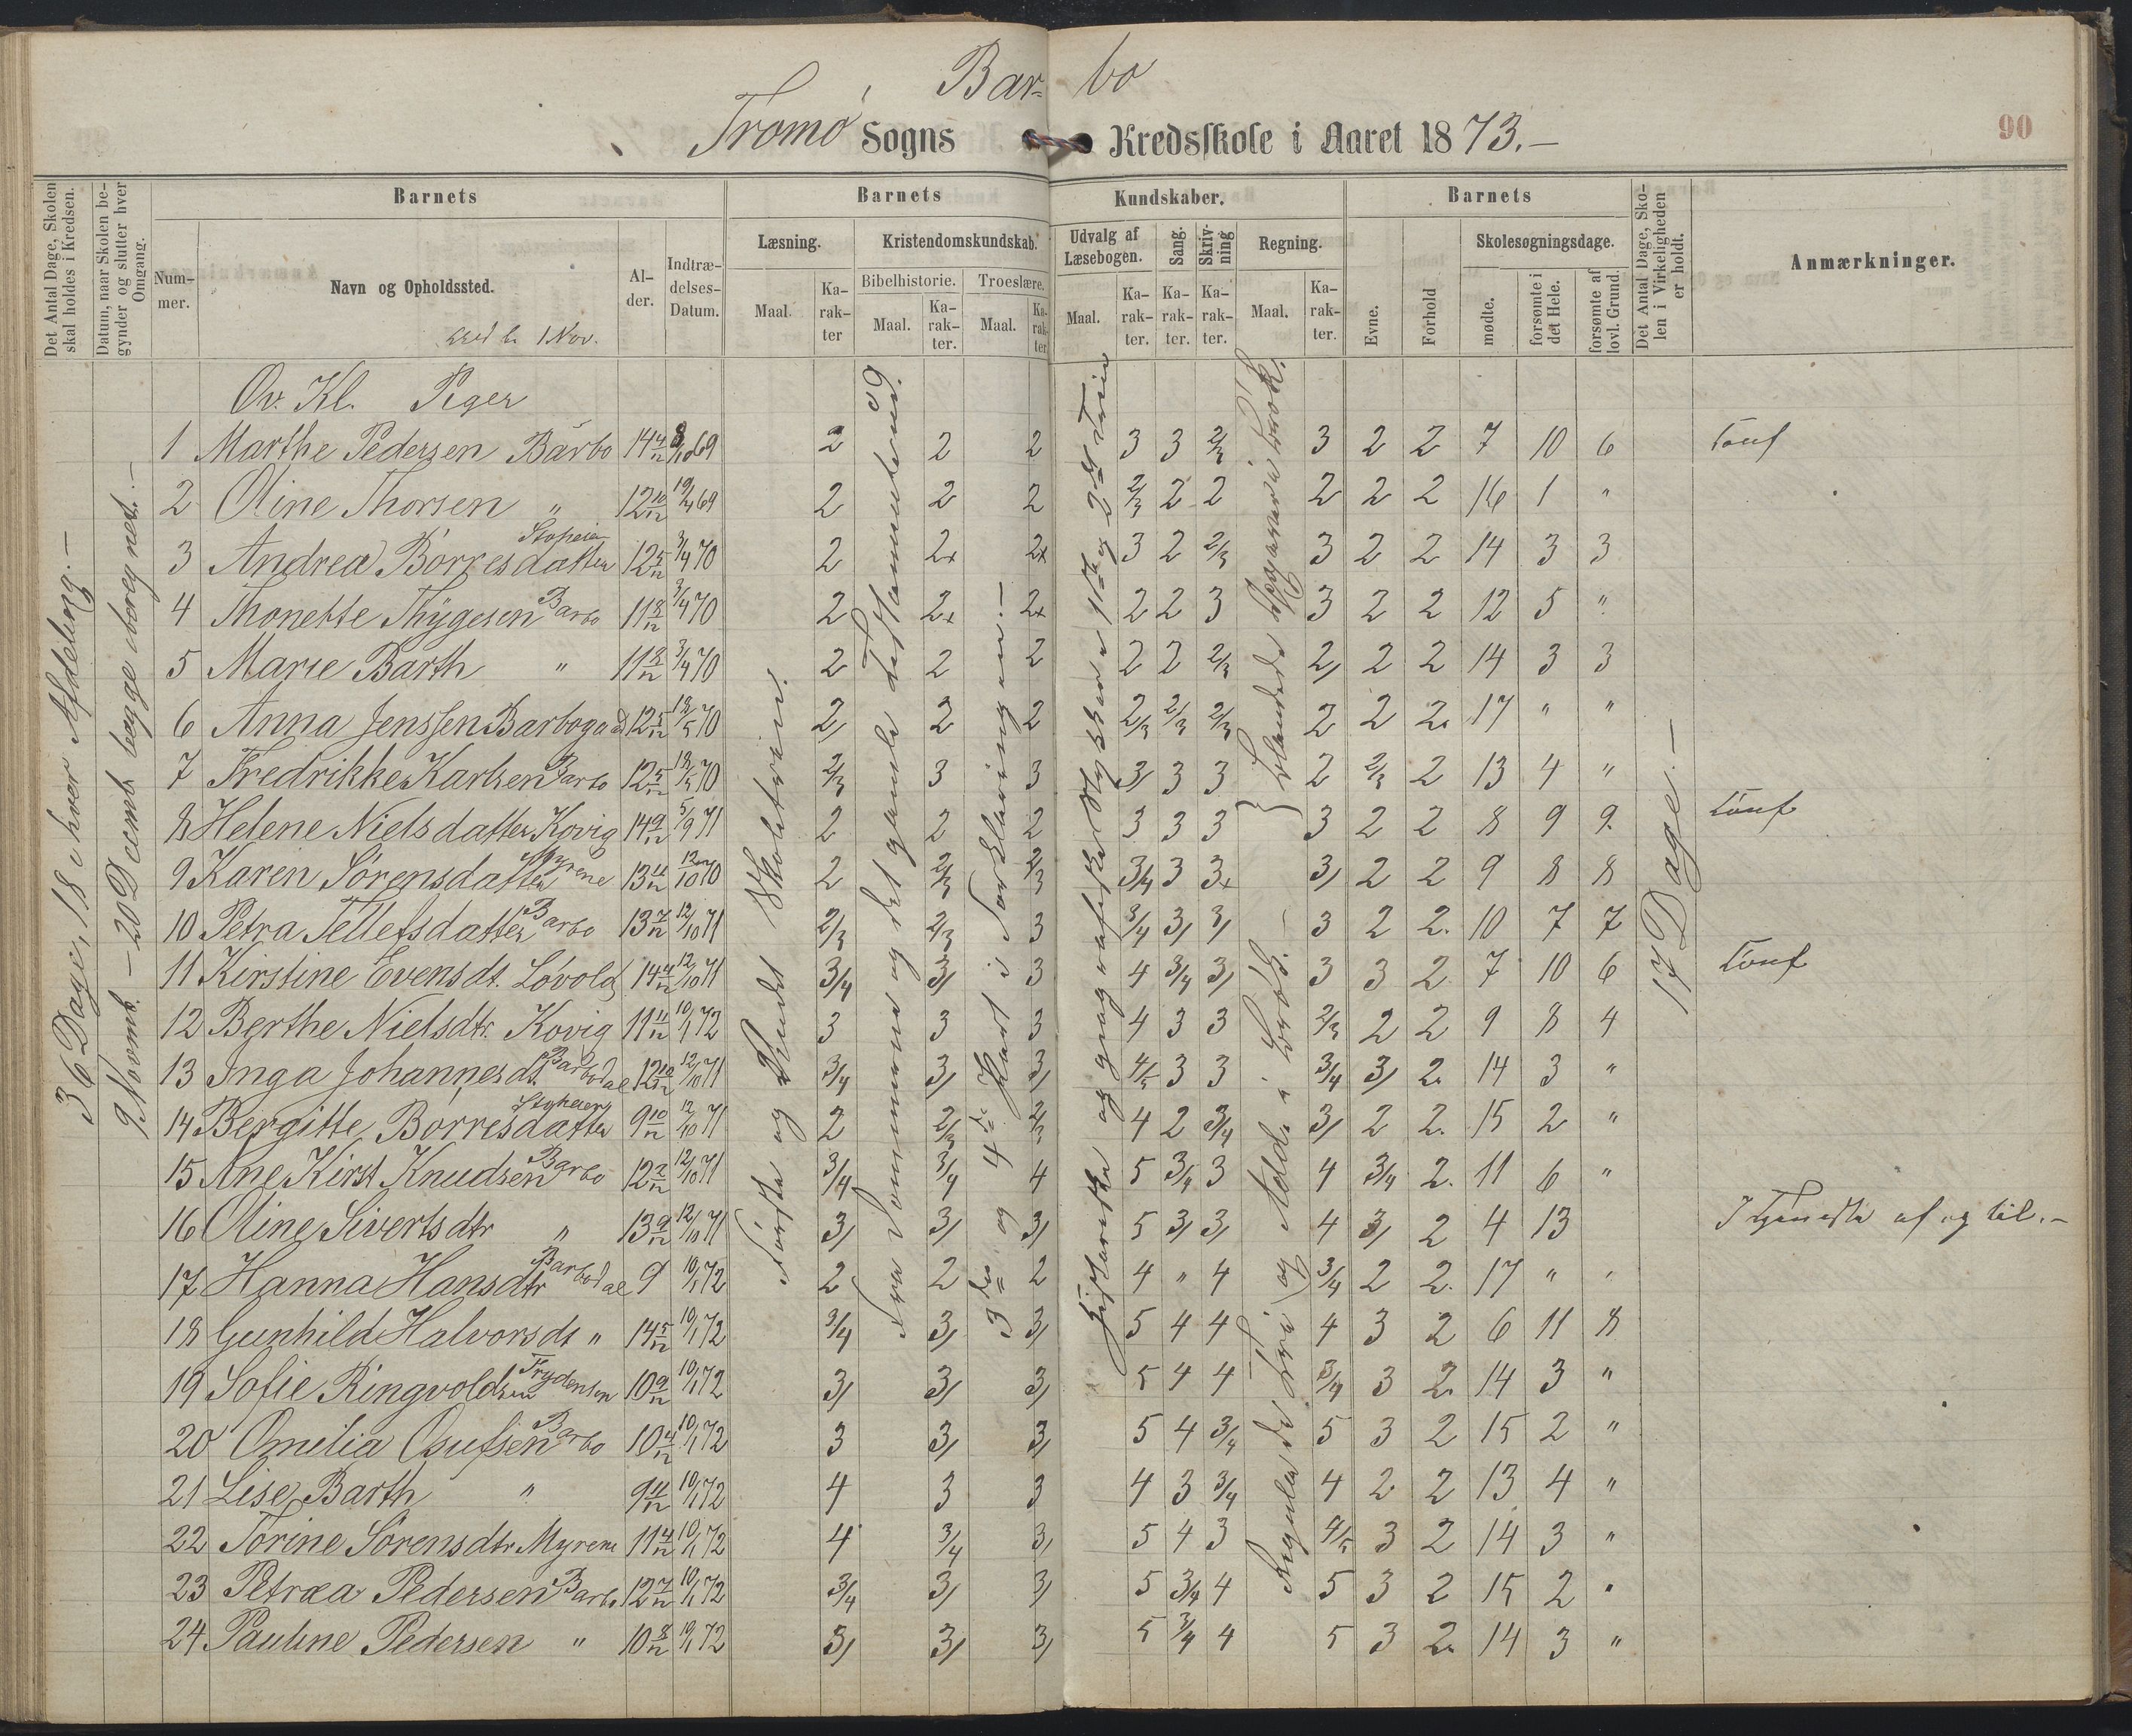 Bar- bo
Tromø Sogns Kredsskole i Aaret 1873.-
90
Det Antal Dage, Skolen skal holdes i Kredsen.
Datum, naar Skolen begynder og slutter hver Omgang.
Barnets
Nummer.
Navn og Opholdssted.
1 Nov.
Alder.
Indtrædelses-Datum.
Barnets Kundskaber.
Læsning.
Maal.
Karakter
Kristendomskundskab.
Bibelhistorie.
Maal.
Karakter.
Troeslære.
Maal.
Karakter
Udvalg af Læsebogen.
Maal.
Karakter.
Sang.
Karakter.
Skrivning
Karakter.
Regning.
Maal.
Karakter.
Barnets
Evne.
Forhold
Skolesøgningsdage.
mødte.
forsømte i det Hele.
forsømte af lovl. Grund.
Det Antal Dage, Skolen i Virkeligheden er holdt.
Anmærkninger.
36 Dage, 18 i hver Afdeling.-
9 Novemb. - 20 Decemb. begge iberegnet.-
Første og Andet Skoletrin.
3die og 4de Part i Forklaringen.-
17 Dage.-
Ov. Kl. Piger
1 Marthe Pedersen Barbo 14 4/12 69 2 2 2 3 3 2/3 3 2 2 7 10 6 Conf
2 Oline Thorsen " 12 10/12 19/4 69 2 2 2 2/3 2 2 2 2 2 16 1 "
3 Andrea Børresdatter 12 5/12 3/4 70 2 2x 2x 3 2 2/3 3 2 2 14 3 3
4 Thonette Thygesen Barbo 11 8/12 3/4 70 2 2x 2x 2 2 3 3 2 2 12 5 "
5 Marie Barth " 11 8/12 3/4 70 2 2 2 2 2 2/3 2/ 2 2 14 3 3
6 Anna Jenssen Barbogad 12 5/12 70 2/ 2 2 2/3 2/3 2/3 2 2 2. 17 " "
7 Fredrikke Karlsen Barbo 12 5/12 70 2/3 3 3 3/ 3 3 2 2/3 2 13 4 "
8 Helene Nielsdatter Kovig 14 9/12 5/9 71 2 2 2 3 3 3 3 2 2 8 9 9. Conf
9 Karen Sørensdatter Myrene 13 11/12 12/10 70 2 2/3 2/3 3/4 3 3x 3/ 2 2 9 8 8
10 Petra Tellefsdatter Barbo 13 7/12 12/10 71 2/3 2/3 3 3/4 3/ 3/ 3 2 2. 10 7 7
11 Kirstine Evensdt. Løvold 14 4/12 12/10 71 3/4 3/ 3 4 3/4 3/ 3 3 2 7 10 6 Conf
12 Berthe Nielsdtr. Kovig 11 11/12 10/1 72 3 3 3 4 3 3 2/3 2 2 9 8 4
13 Inga Johannesdt. Barbodal 12 10/12 12/10 71 3/4 3/ 3/ 4/5 3 3 3/4 3/ 2. 14 3 "
14 Bergitte Børresdatter 9 10/12 12/10 71 2 2/3 2/3 4 2 3/4 3/ 2 2. 15 2 "
15 Ane Kirst Knudsen Barbo 12 2/12 12/10 71 3/4 3/4 4 5 3/4 3 4 3/4 2. 11 6 "
16 Oline Sivertsdtr " 13 9/12 12/10 71 3/ 3/ 3/ 5 3/ 3/ 4 3/ 2 4 13 I Tjeneste af og til.-
17 Hanna Hansdtr Barbodal 9 10/1 72 2 2 2 4 " 4 3/4 2 2. 17 " "
18 Gunhild Halvorsdt " 14 5/12 10/1 72 3/4 3/ 3/ 5 4 4 4 3 2 6 11 8
19 Sofie Ringvoldsen 10 9/12 10/1 72 3/ 3/ 3/ 5 4 4 3/4 3 2. 14 3 "
20 Omilia Osufsen Barbo 10 4/12 10/1 72 3 3/ 3/ 5 4 3/4 5 3 2 15 2 "
21 Lise Barth " 9 11/12 10/1 72 4 3 3 4 3 3/4 4 2 2 13 4 "
22 Torine Sørensdtr Myrene 11 4/12 10/1 72 4 3/4 3/ 5 4 3 4/5 3 2 14 3 "
23 Petræa Pedersen Barbo 12 7/12 10/1 72 3/4 3/ 3/ 5 3/4 4 5 3 2 15 2 "
24 Pauline Pedersen " 10 8/12 10/1 72 3/ 3/ 3/ 5 3/4 4 5 3 2. 14 3 "